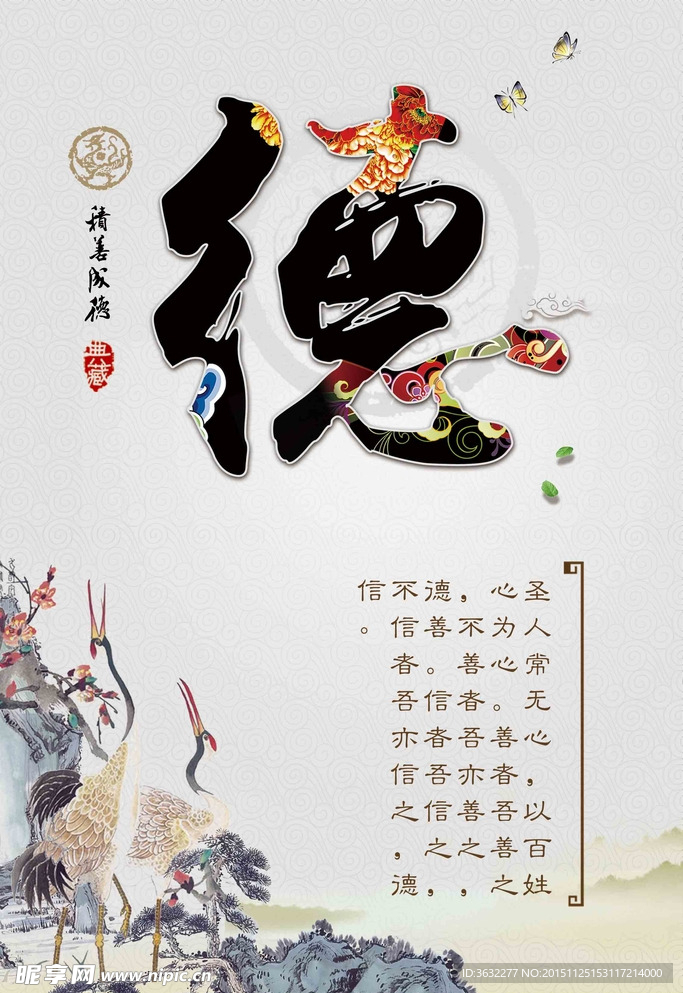 德
積善成德
典藏
圣人常无心，以百姓
心为心。善者吾善之
，不善者吾亦善之，
德善。信者吾信之，
不信者吾亦信之，德
信。
昵享网 www.nipic.cn
ID:3632277 NO:20151125153117214000